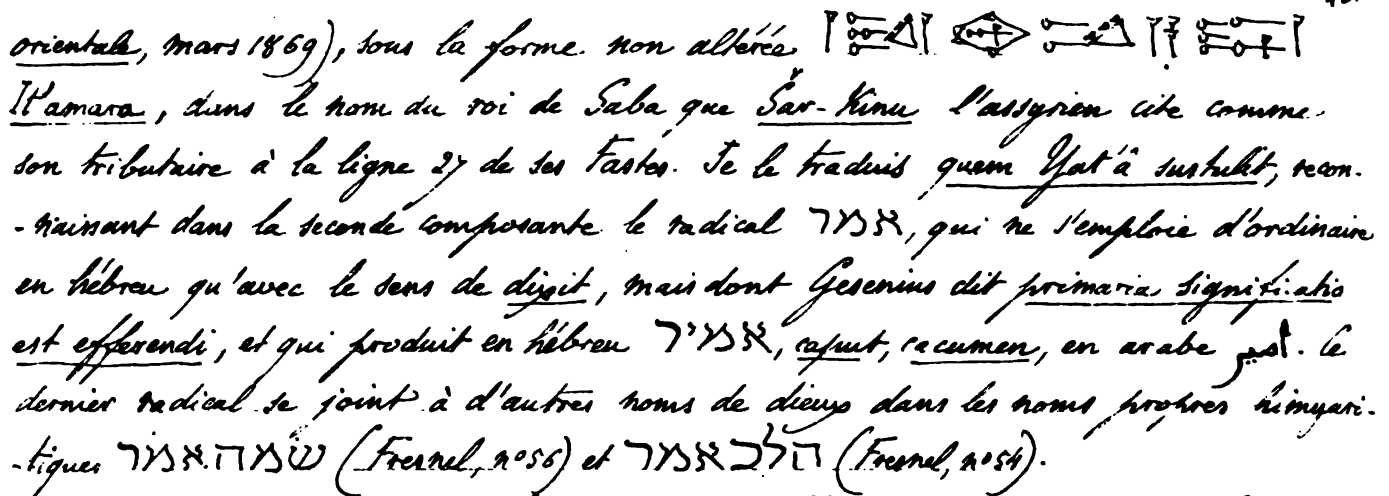 orientale, mars 1869), sous la forme non altérée
It'amara, dans le nom du roi de Saba que Šar-Kinu l'assyrien cite comme
son tributaire à la ligne 27 de ses Fastes. Je le traduis quem Yat'â sustulit, recon-
-naissant dans la seconde composante le radical אמר, qui ne s'emploie d'ordinaire
en hébreu qu'avec le sens de dixit, mais dont Gesenius dit primaria significatio
est efferendi, et qui produit en hébreu אמיר, caput, cacumen, en arabe أمير. Ce
dernier radical se joint à d'autres noms de dieux dans les noms propres himyari-
-tiques שמהאמר (Fresnel, n° 56) et הלכאמר (Fresnel, n° 54).